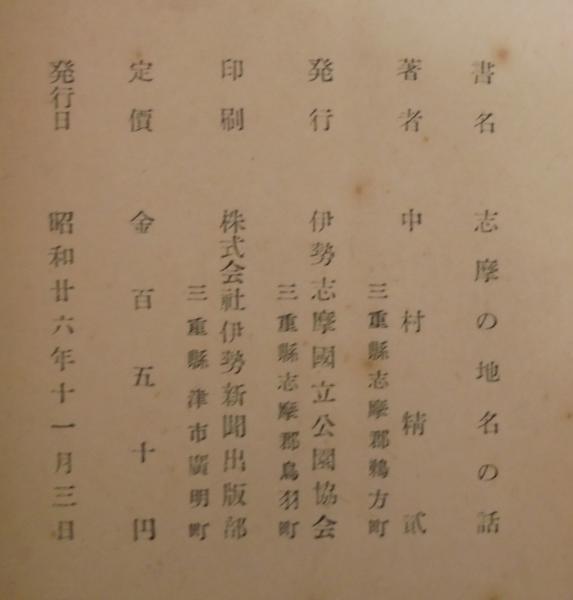 書名 志摩の地名の話
著者 中村精貳
三重縣志摩郡鵜方町
発行 伊勢志摩國立公園協会
三重縣志摩郡鳥羽町
印刷 株式会社伊勢新聞出版部
三重縣津市廣明町
定價 金百五十円
発行日 昭和廿六年十一月三日